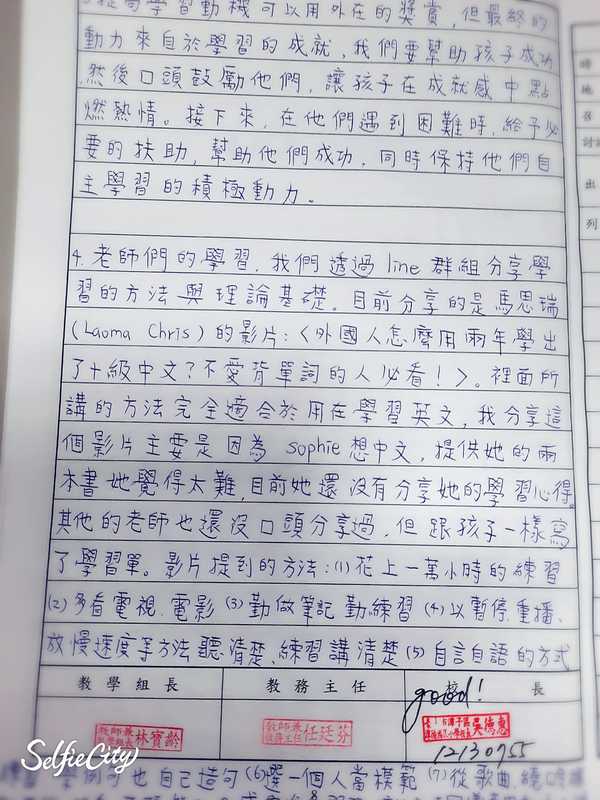 提高學習動機可以用外在的獎賞，但最終的
動力來自於學習的成就，我們要幫助孩子成功
然後口頭鼓勵他們，讓孩子在成就感中點
燃熱情。接下來，在他們遇到困難時，給予必
要的扶助，幫助他們成功，同時保持他們自
主學習的積極動力。
4. 老師們的學習，我們透過 line 群組分享學
習的方法與理論基礎。目前分享的是馬思瑞
(Laoma Chris) 的影片：〈外國人怎麼用兩年學出
了十級中文？不愛背單詞的人必看！〉。裡面所
講的方法完全適合於用在學習英文，我分享這
個影片主要是因為 sophie 想中文，提供她的兩
本書她覺得太難，目前她還沒有分享她的學習心得。
其他的老師也還沒口頭分享過，但跟孩子一樣寫
了學習單。影片提到的方法：(1) 花上一萬小時的練習
(2) 多看電視、電影 (3) 勤做筆記勤練習 (4) 以暫停、重播、
放慢速度等方法聽清楚、練習講清楚 (5) 自言自語的方式
教學組長 教務主任 校長
good!
教師兼教學組長 林寶齡 教師兼教務主任 任廷芬
12130755
也自己造句 (6) 選一個人當模範 (7) 從歌曲
時
地
召
討
出
列
SelfieCity